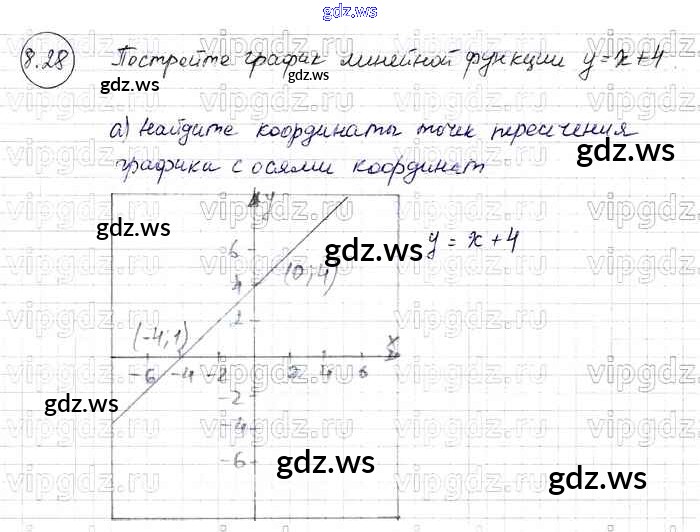 gdz.ws
8.28 Постройте график линейной функции y = x + 4.
gdz.ws
gdz.ws
а) Найдите координаты точек пересичения
gdz.ws
графика с осями координат
vipgdz.ru vipgdz.ru vipgdz.ru vipgdz.ru
y
gdz.ws
gdz.ws
y = x + 4
6
4
(0; 4)
2
(-4; 1)
x
-6 -4 -2 2 4 6
-2
gdz.ws
-4
-6
gdz.ws
gdz.ws